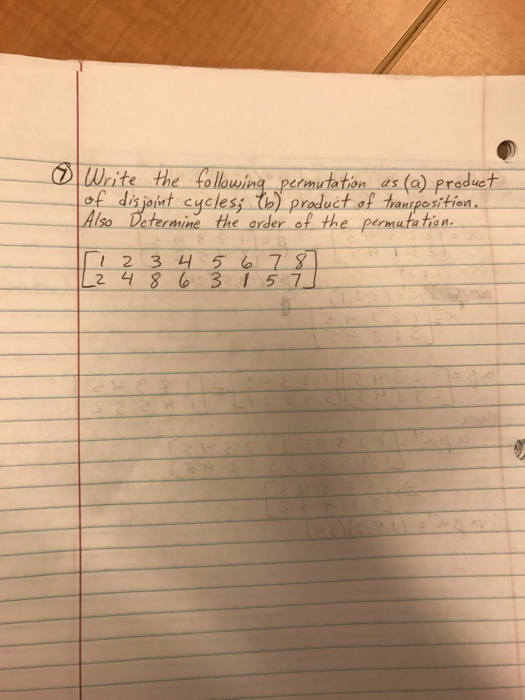 ⑦ Write the following permutation as (a) product
of disjoint cycles; (b) product of transposition.
Also Determine the order of the permutation.
[1 2 3 4 5 6 7 8
2 4 8 6 3 1 5 7]